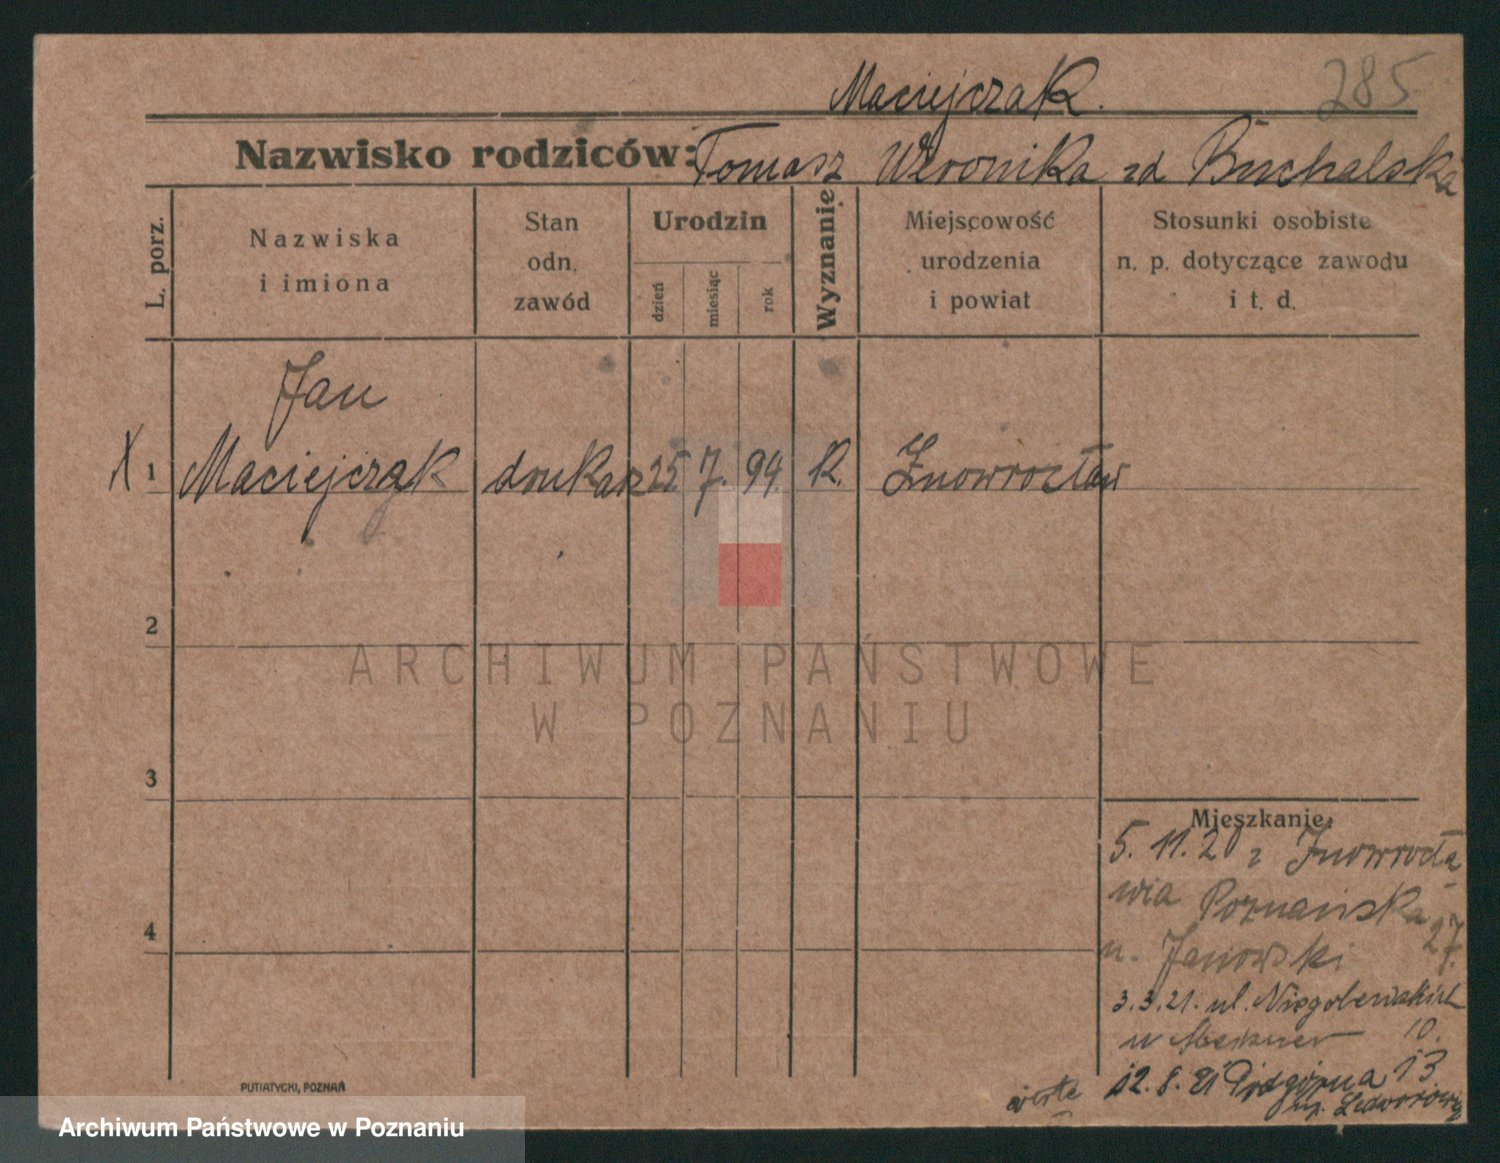 285
Maciejczak.
Nazwisko rodziców: Tomasz Weronika zd Buchalska
L. porz.
Nazwiska
i imiona
Stan
odn.
zawód
Urodzin
dzień
miesiąc
rok
Wyznanie
Miejscowość
urodzenia
i powiat
Stosunki osobiste
n. p. dotyczące zawodu
i t. d.
Jan
X 1 Maciejczak drukarz 25. 7. 94. K. Inowrocław
2
ARCHIWUM PAŃSTWOWE
W POZNANIU
3
Mieszkanie
5. 11. 20 z Inowrocła
wia Poznańska 27.
4
u. Janowski
3.3.21. ul.
u 10.
12. 8. 21 Podgórna 13
PUTIATYCKI, POZNAŃ
Archiwum Państwowe w Poznaniu